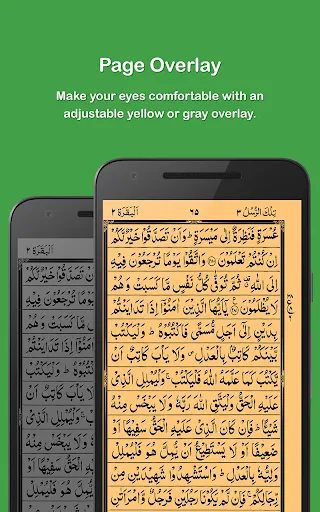 Page Overlay
Make your eyes comfortable with an
adjustable yellow or gray overlay.
اَلْبَقَرَة ٢
تِلْكَ الرُّسُلُ ٣ ٦٥ اَلْبَقَرَة ٢
عُسْرَةٍ فَنَظِرَةٌ اِلٰى مَيْسَرَةٍ ؕ وَاَنْ تَصَدَّقُوْا خَيْرٌ لَّكُمْ
اِنْ كُنْتُمْ تَعْلَمُوْنَ وَاتَّقُوْا يَوْمًا تُرْجَعُوْنَ فِيْهِ
اِلَى اللّٰهِ ثُمَّ تُوَفّٰى كُلُّ نَفْسٍ مَّا كَسَبَتْ وَهُمْ
لَا يُظْلَمُوْنَ يٰۤاَيُّهَا الَّذِيْنَ اٰمَنُوْۤا اِذَا تَدَايَنْتُمْ
بِدَيْنٍ اِلٰٓى اَجَلٍ مُّسَمًّى فَاكْتُبُوْهُ ؕ وَلْيَكْتُبْ
بَّيْنَكُمْ كَاتِبٌۢ بِالْعَدْلِ وَلَا يَاْبَ كَاتِبٌ اَنْ
يَّكْتُبَ كَمَا عَلَّمَهُ اللّٰهُ فَلْيَكْتُبْ ۚ وَلْيُمْلِلِ الَّذِيْ
عَلَيْهِ الْحَقُّ وَلْيَتَّقِ اللّٰهَ رَبَّهٗ وَلَا يَبْخَسْ مِنْهُ
شَيْـًٔا ؕ فَاِنْ كَانَ الَّذِيْ عَلَيْهِ الْحَقُّ سَفِيْهًا اَوْ
ضَعِيْفًا اَوْ لَا يَسْتَطِيْعُ اَنْ يُّمِلَّ هُوَ فَلْيُمْلِلْ
وَلِيُّهٗ بِالْعَدْلِ ؕ وَاسْتَشْهِدُوْا شَهِيْدَيْنِ مِنْ
رِّجَالِكُمْ ۚ فَاِنْ لَّمْ يَكُوْنَا رَجُلَيْنِ فَرَجُلٌ وَّامْرَاَتٰنِ